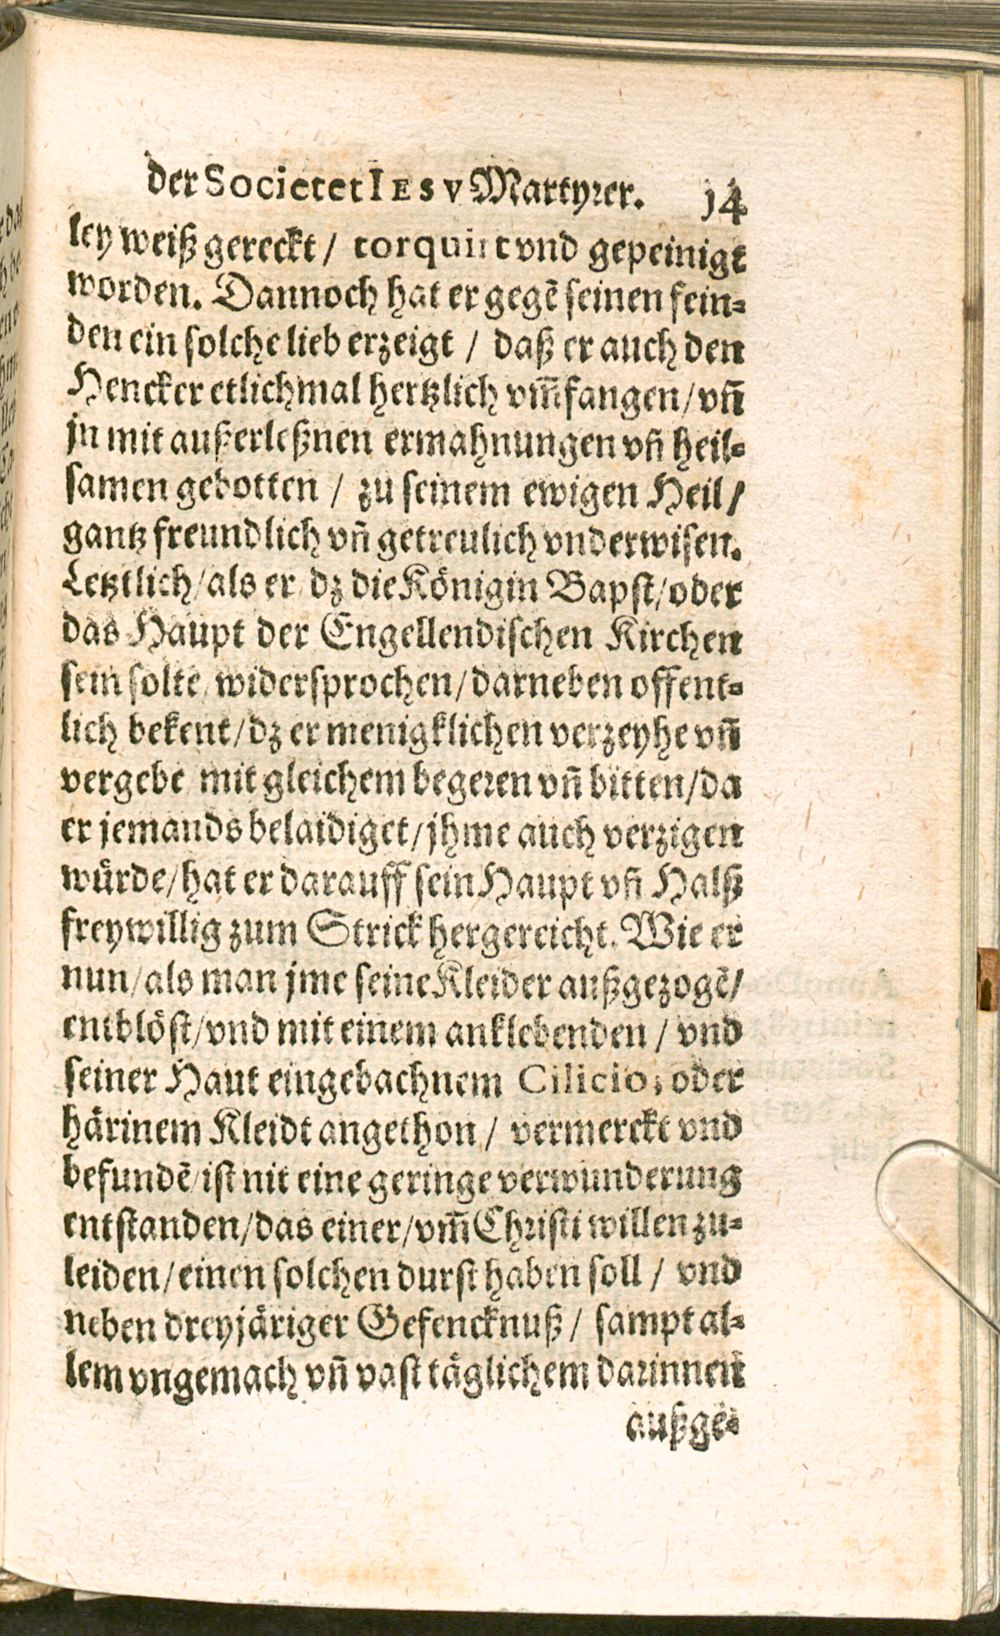 der Societet IESV Martyrer. 14
ley weiß gereckt / torquirt vnd gepeinigt
worden. Dannoch hat er gegẽ seinen fein-
den ein solche lieb erzeigt / daß er auch den
Hencker etlichmal hertzlich vm̃fangen / vñ
jn mit außerleßnen ermahnungen vñ heil-
samen gebotten / zu seinem ewigen Heil /
gantz freundlich vñ getreulich vnderwisen.
Letztlich / als er dz die Königin Bapst / oder
das Haupt der Engellendischen Kirchen
sein solte widersprochen / darneben offent-
lich bekent / dz er menigklichen verzeyhe vñ
vergebe mit gleichem begeren vñ bitten / da
er jemands belaidiget / jhme auch verzigen
wuͤrde / hat er darauff sein Haupt vñ Halß
freywillig zum Strick hergereicht. Wie er
nun / als man jme seine Kleider außgezogẽ /
entbloͤst / vnd mit einem anklebenden / vnd
seiner Haut eingebachnem Cilicio, oder
haͤrinem Kleidt angethon / vermerckt vnd
befundẽ ist nit eine geringe verwunderung
entstanden / das einer / vm̃ Christi willen zu-
leiden / einen solchen durst haben soll / vnd
neben dreyjaͤriger Gefencknuß / sampt al-
lem vngemach vñ vast taͤglichem darinnen
außge-